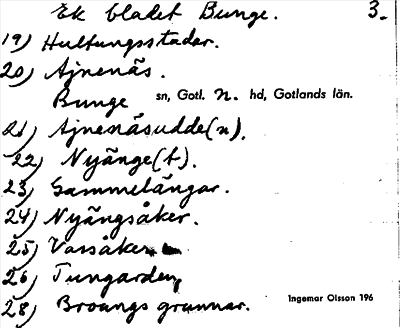 Ek bladet Bunge. 3.
19) Hultungsstadar.
20) Ajnenäs.
Bunge sn, Gotl. n. hd, Gotlands län.
21) Ajnenäsudde(n).
22) Nyänge(t).
23) Gammelängar.
24) Nyängsåker.
25)
26) Tungarden
28) Broungs grunnar.
Ingemar Olsson 196